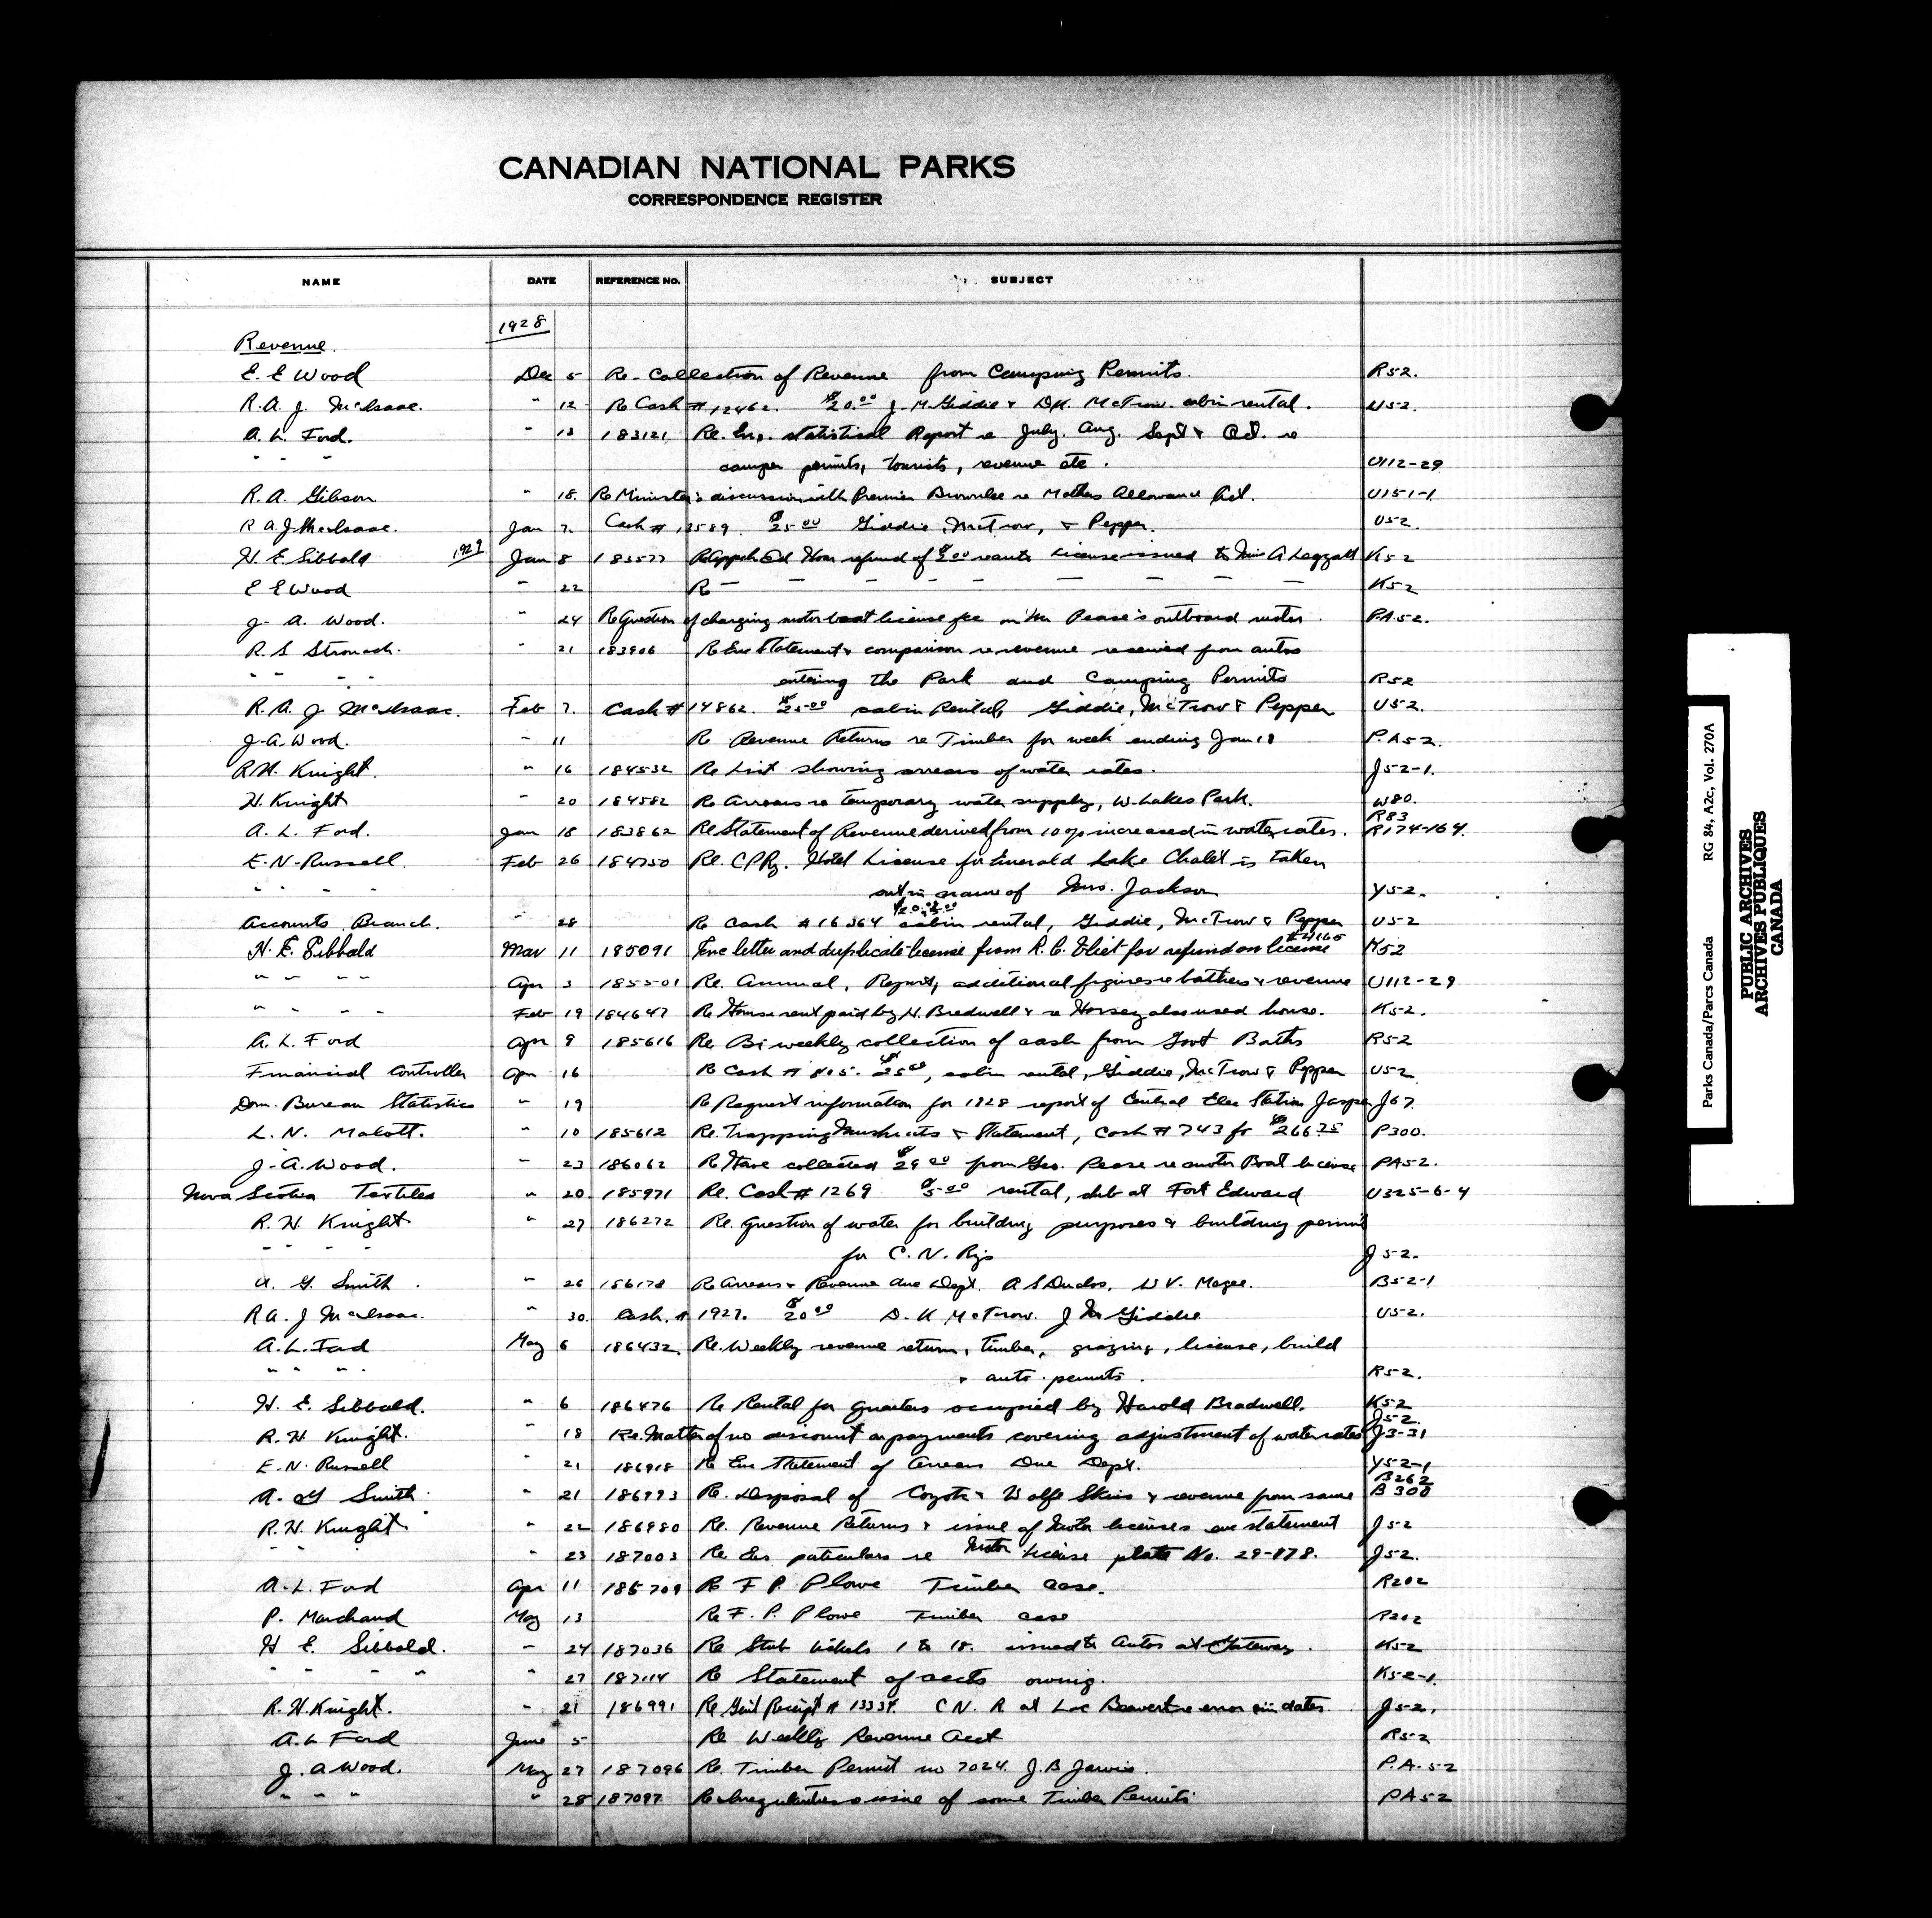 CANADIAN NATIONAL PARKS
CORRESPONDENCE REGISTER
NAME DATE REFERENCE NO. SUBJECT
1928
Revenue.
E. E Wood Dec 5 Re- Collection of Revenue from Camping Permits. R52.
R. A. J. McIsaac. " 12 Re Cash # 12462. $20.00 J. M. Giddie & D.K. McTrow. cabin rental. U52.
A. L. Ford. " 13 183121 Re. Enc. statistical Report re July. Aug. Sept & Oct. re
" " " camper permits, tourists, revenue etc. U112-29
R. A. Gibson " 18. Re Minister's discussion with Premier Brownlee re Mothers Allowance Act. U151-1
R A. J. McIsaac. Jan 7. Cash # 13589 $25.00 Giddie, McTrow, & Pepper. U52.
H. E. Sibbald 1929 Jan 8 183577 Ed refund of $2.00 license issued to A Leggatt K52
E E Wood " 22 Re — — — — — — — — K52
J. A. Wood. " 24 Re Question of charging motor boat license fee on Mr Pease's outboard motor. P.A.52.
R. S Stronach. " 21 183906 Re Enc Statement & comparison re revenue received from autos
" " " " entering the Park and Camping Permits R52
R. A. J McIsaac. Feb 7. Cash # 14862. $25.00 cabin Rental, Giddie, McTrow & Pepper U52.
J. A. Wood. " 11 Re Revenue Returns re Timber for week ending Jan 18 P.A52.
R. H. Knight. " 16 184532 Re List showing arrears of water rates. J52-1.
H. Knight " 20 184582 Re Arrears re temporary water supply, W. Lakes Park. W80.
R83
A. L. Ford. Jan 18 183862 Re Statement of Revenue derived from 10% increased in water rates. R174-164.
E. N. Russell. Feb 26 184750 Re. C P Ry. Hotel License for Emerald Lake Chalet is taken
" " " out in name of Mrs. Jackson Y52.
Accounts Branch. " 28 Re Cash # 16364 cabin rental, Giddie, McTrow & Pepper U52
#4165
H. E. Sibbald Mar 11 185091 Enc letter and duplicate license from R. C. Vliet for refund on license K52
" " " " Apr 3 185501 Re. Annual, Report, additional figures re bathers & revenue U112-29
" " " " Feb 19 184647 Re House rent paid by H. Bradwell & re Horsey also used house. K52.
A. L. Ford Apr 9 185616 Re Bi weekly collection of cash from Govt Baths R52
Financial Controller Apr 16 Re Cash # 805. $25.00, cabin rental, Giddie, McTrow & Pepper U52
Dom. Bureau Statistics " 19 Re Request information for 1928 report of Central Elec Station Jasper J67.
L. N. Malott. " 10 185612 Re. Trapping Muskrats & Statement, Cash # 743 for $266.75 P300.
J. A. Wood. " 23 186062 Re Have collected $29.00 from Geo. Pease re motor Boat license PA52.
Nova Scotia Textiles " 20 185971 Re. Cash # 1269 $5.00 rental, club at Fort Edward U325-6-4
R. H. Knight " 27 186272 Re. Question of water for building purposes & building permit
" " " " for C. N. Rys J52.
A. G. Smith. " 26 186178 Re Arrears & Revenue due Dept. A S Duclos, W V. Magee. B52-1
R A. J McIsaac. " 30. Cash. # 1927. $20.00 D. K McTrow. J M Giddie U52.
A. L. Ford May 6 186432 Re. Weekly revenue return, timber, grazing, license, build
" " " " & auto permits. R52.
H. E. Sibbald. " 6 186476 Re Rental for quarters occupied by Harold Bradwell. K52
J52.
R. H Knight. " 18 Re. Matter of no discount on payments covering adjustment of water rates J3-31
E. N. Russell " 21 186918 Re Enc Statement of Arrears Due Dept. Y52-1
B262
A. G Smith " 21 186993 Re. Disposal of Coyote & Wolfe Skins & revenue from same B300
R. H. Knight " 22 186980 Re. Revenue Returns & issue of Motor licenses enc statement J52
" " " 23 187003 Re Enc paticulars re Motor License plate No. 29-878. J52.
A. L. Ford Apr 11 185709 Re F P. Plowe Timber Case. R202
P. Marchand May 13 Re F. P. Plowe Timber case R202
H E. Sibbald. " 24 187036 Re Stub tickets 1 to 18. issued to Autos at Gateway. K52
" " " " " 27 187114 Re Statement of accts owing. K52-1.
R. H. Knight. " 21 186991 Re Receipt # 13334. C N. R. at Lac Beauvert re error in dates. J52.
A. L Ford June 5 Re Weekly Revenue Acct R52
J. A Wood. May 27 187096 Re. Timber Permit no 7024. J. B Jarvis. P.A.52
" " " " 28 187097 Re Irregularities issue of some Timber Permits PA52
Parks Canada/Parcs Canada RG 84, A2c, Vol. 270A
PUBLIC ARCHIVES
ARCHIVES PUBLIQUES
CANADA